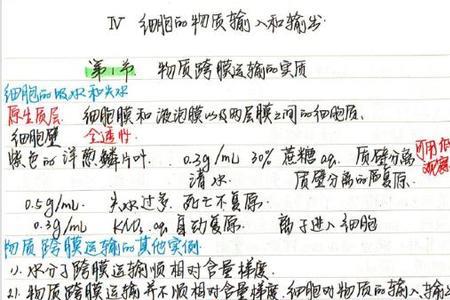 IV 细胞的物质输入和输出.
第1节 物质跨膜运输的实质
细胞的吸水和失水
原生质层 细胞膜和液泡膜以及两层膜之间的细胞质.
细胞壁 全透性.
紫色的洋葱鳞片叶. 0.3g/mL 30% 蔗糖aq. 质壁分离 可用低
清水. 质壁分离的复原. 观察
0.5g/mL. 失水过多, 死亡不复原.
0.3g/mL KNO₃ aq. 自动复原. 离子进入细胞
物质跨膜运输的其他实例.
1). 水分子跨膜运输顺相对含量梯度.
2). 物质跨膜运输并不顺相对含量梯度. 细胞对物质的输入输出